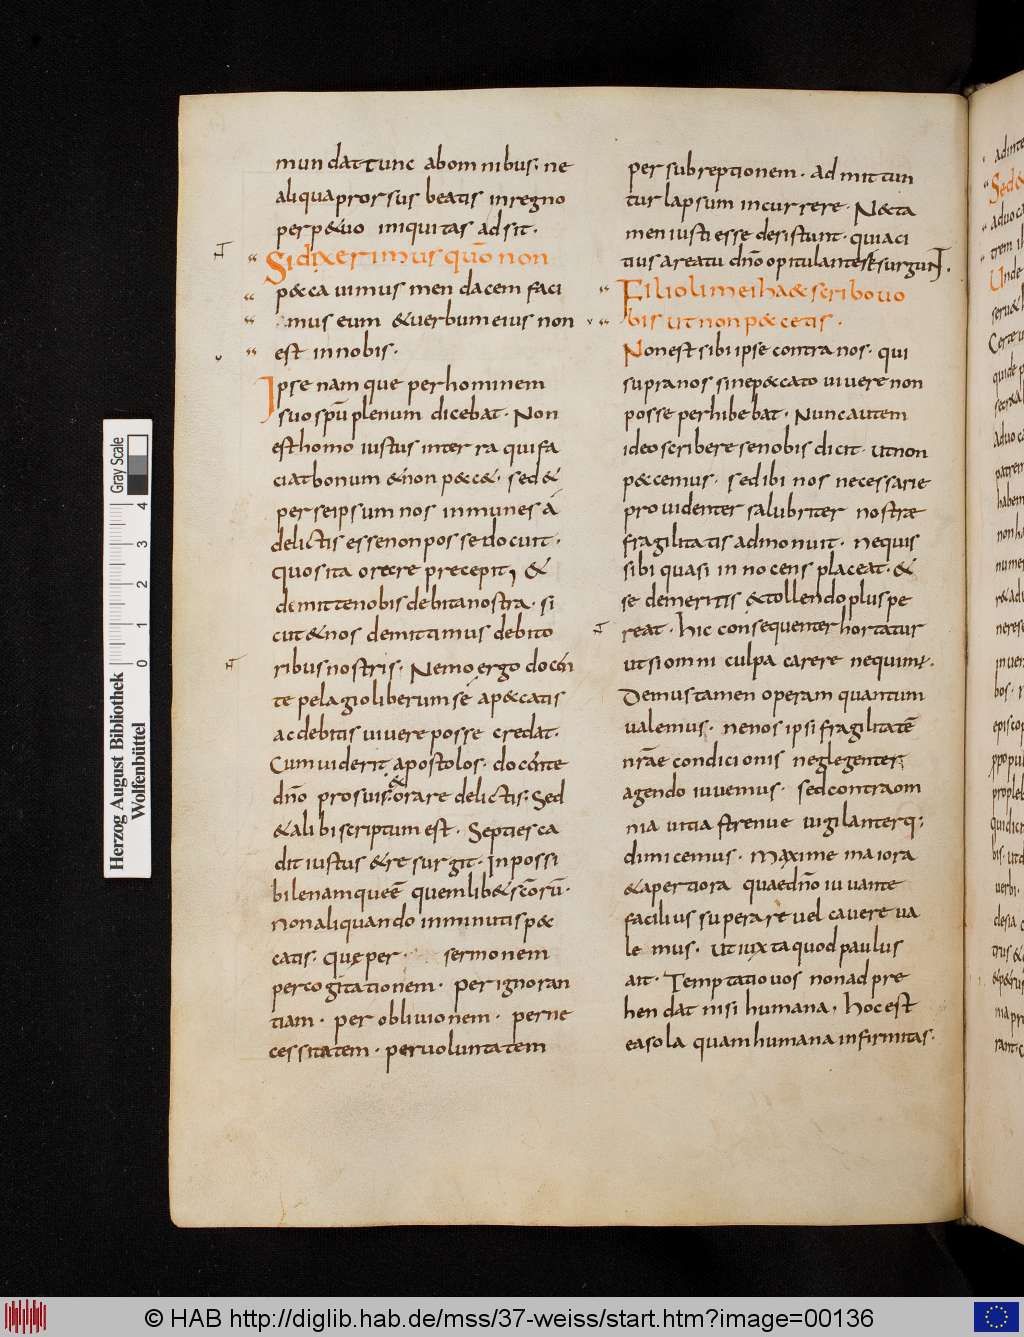 mundat tunc ab omnibus. ne
aliqua prorsus beatis in regno
perp&uo iniquitas adsit.
Si dixerimus quō non
p&cauimus mendacem faci
mus eum &uerbum eius non
est in nobis.
Ipse namque per hominem
suo spū plenum dicebat. Non
est homo iustus inter ra qui fa
ciat bonum &non p&c&. sed &
per se ipsum nos inmunes á
delictis esse non posse docuit.
quos ita orare precepit, &
demitte nobis debita nostra. si
cut &nos demittimus debito
ribus nostris. Nemo ergo docén
te pelagio liberum se ap&catis
ac debitis uiuere posse credat.
Cum uiderit apostolos. docénte
dño pro suis. & orare delictis. Sed
&alibi scriptum est. Septies ca
dit iustus &resurgit. Inpossi
bile namque ē quemlib& scōrū.
Non aliquando in minutis p&
catis. quę per sermonem
per cogitationem. per ignoran
tiam. per obliuionem. per ne
cessitatem. per uoluntatem
per subreptionem. admittun
tur lapsum incurrere. N& ta
men iusti esse desistunt. quia ci
tius a reatu dño opitulante resurgunt.
Filioli mei ha& scribo uo
bis ut non p&cetis.
Non est sibi ipse contra nos. qui
supra nos sine p&cato uiuere non
posse perhibebat. Nunc autem
ideo scribere se nobis dicit. ut non
p&cemus. sed ibi nos necessarie
prouidenter salubriter nostræ
fragilitatis admonuit. nequis
sibi quasi innocens placeat. &
se demeritis &tollendo plus pe
reat. hic consequenter hortatur
ut si omni culpa carere nequim;.
Demus tamen operam quantum
ualemus. ne nos ipsi fragilitatē
nr̄ae condicionis neglegenter
agendo iuuemus. sed contra om
nia uitia strenue uigilanterq;
dimicemus. Maxime maiora
&apertiora quae dño iuuante
facilius superare uel cauere ua
le mus. ut iuxta quod paulus
ait. Temptatio uos non adpre
hendat nisi humana. hoc est
ea sola quam humana infirmitas.
Herzog August Bibliothek
Wolfenbüttel
Gray Scale
0 1 2 3 4
© HAB http://diglib.hab.de/mss/37-weiss/start.htm?image=00136